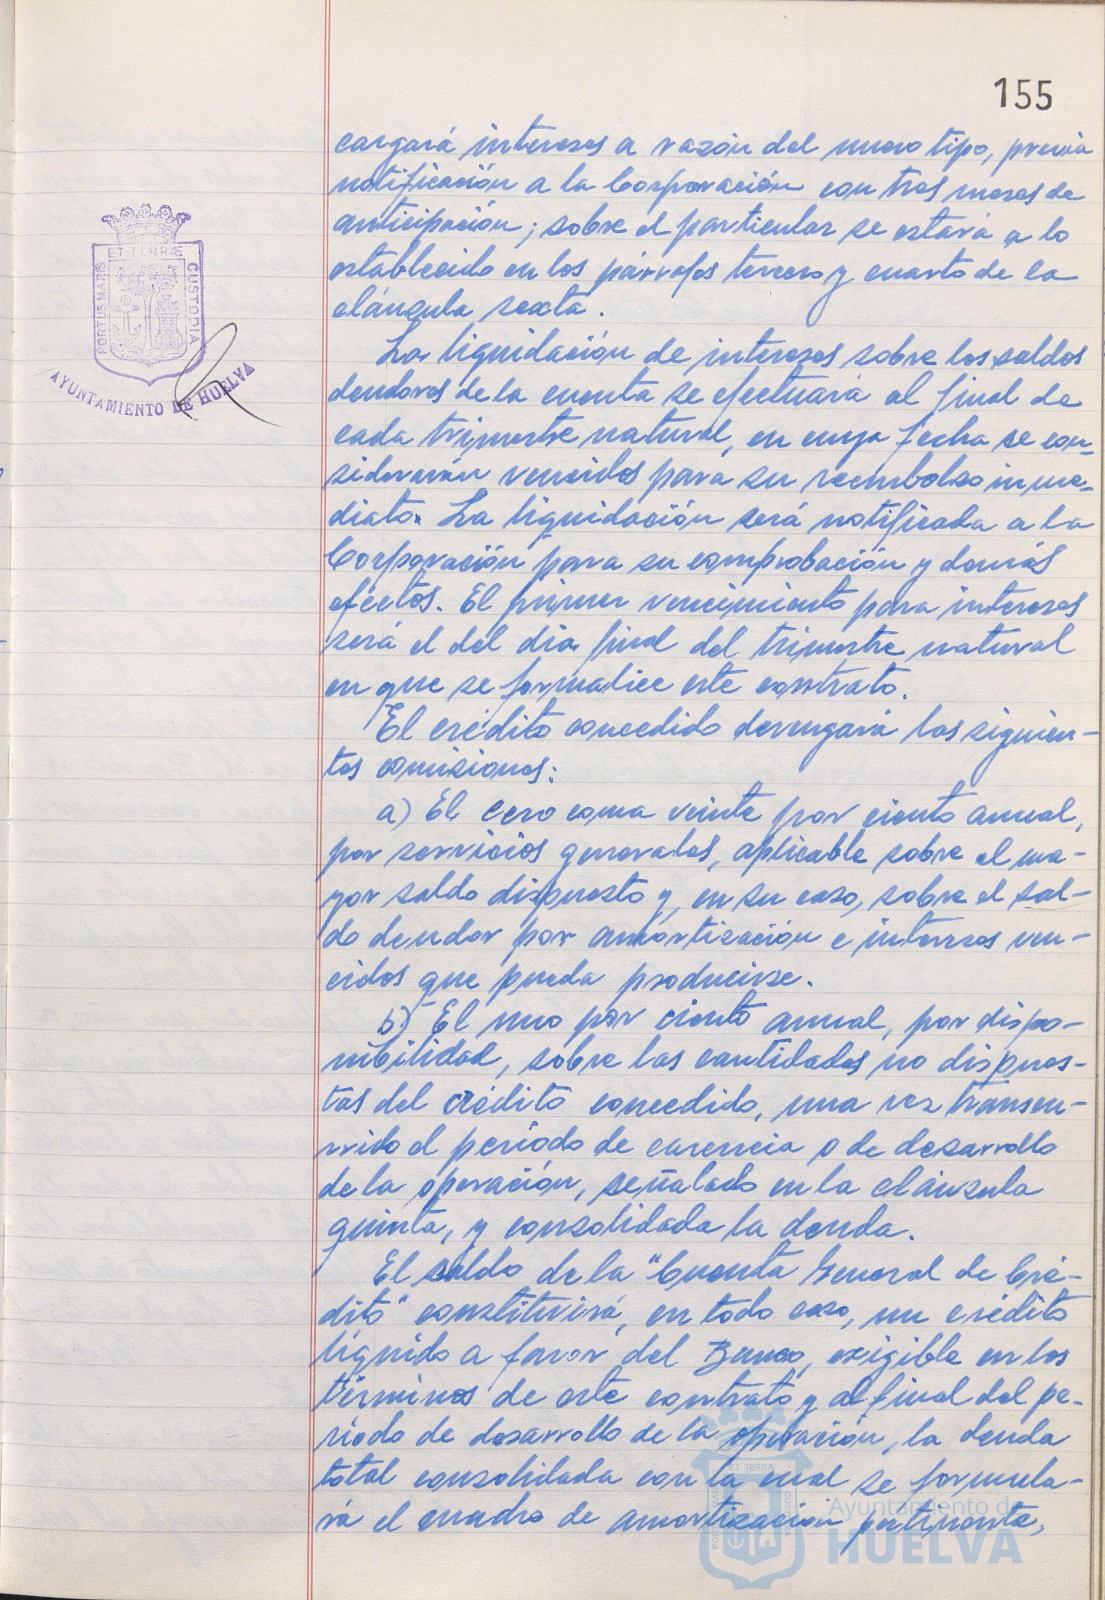 155
cargará intereses a razón del nuevo tipo, previa
notificación a la Corporación con tres meses de
anticipación; sobre el particular se estará a lo
establecido en los párrafos tercero y cuarto de la
cláusula sexta.
La liquidación de intereses sobre los saldos
deudores de la cuenta se efectuará al final de
cada trimestre natural, en cuya fecha se con-
siderarán vencidos para su reembolso inme-
diato. La liquidación será notificada a la
Corporación para su comprobación y demás
efectos. El primer vencimiento para intereses
será el del dia final del trimestre natural
en que se formalice este contrato.
El crédito concedido devengará las siguien-
tes comisiones:
a) El cero coma veinte por ciento anual,
por servicios generales, aplicable sobre el ma-
yor saldo dispuesto y, en su caso, sobre el sal-
do deudor por amortización e intereses ven-
cidos que pueda producirse.
b) El uno por ciento anual, por dispo-
nibilidad, sobre las cantidades no dispues-
tas del crédito concedido, una vez transcu-
rrido el período de carencia o de desarrollo
de la operación, señalado en la cláusula
quinta, y consolidada la deuda.
El saldo de la "Cuenta General de Cré-
dito" constituirá, en todo caso, un crédito
líquido a favor del Banco, exigible en los
términos de este contrato y al final del pe-
ríodo de desarrollo de la operación, la deuda
total consolidada con la cual se formula-
rá el cuadro de amortización pertinente,
PORTUS MARIS ET TERRÆ CUSTODIA
AYUNTAMIENTO DE HUELVA
Ayuntamiento de
HUELVA